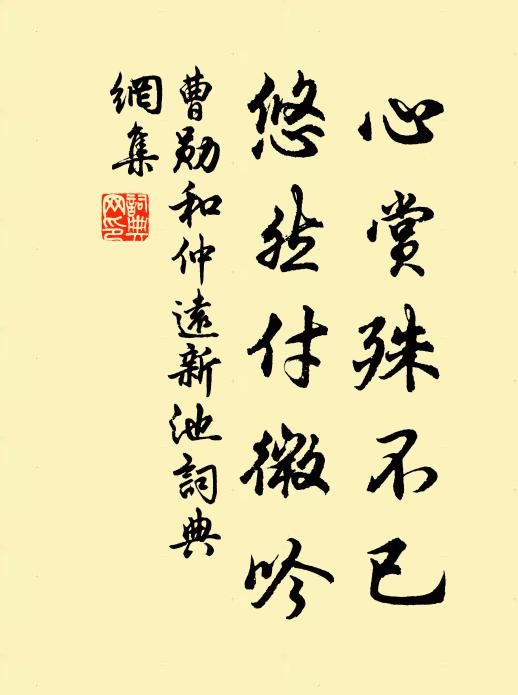 心賞殊不已
悠然付微吟
曹勛和仲遠新池詞典
網集
詞典
网印